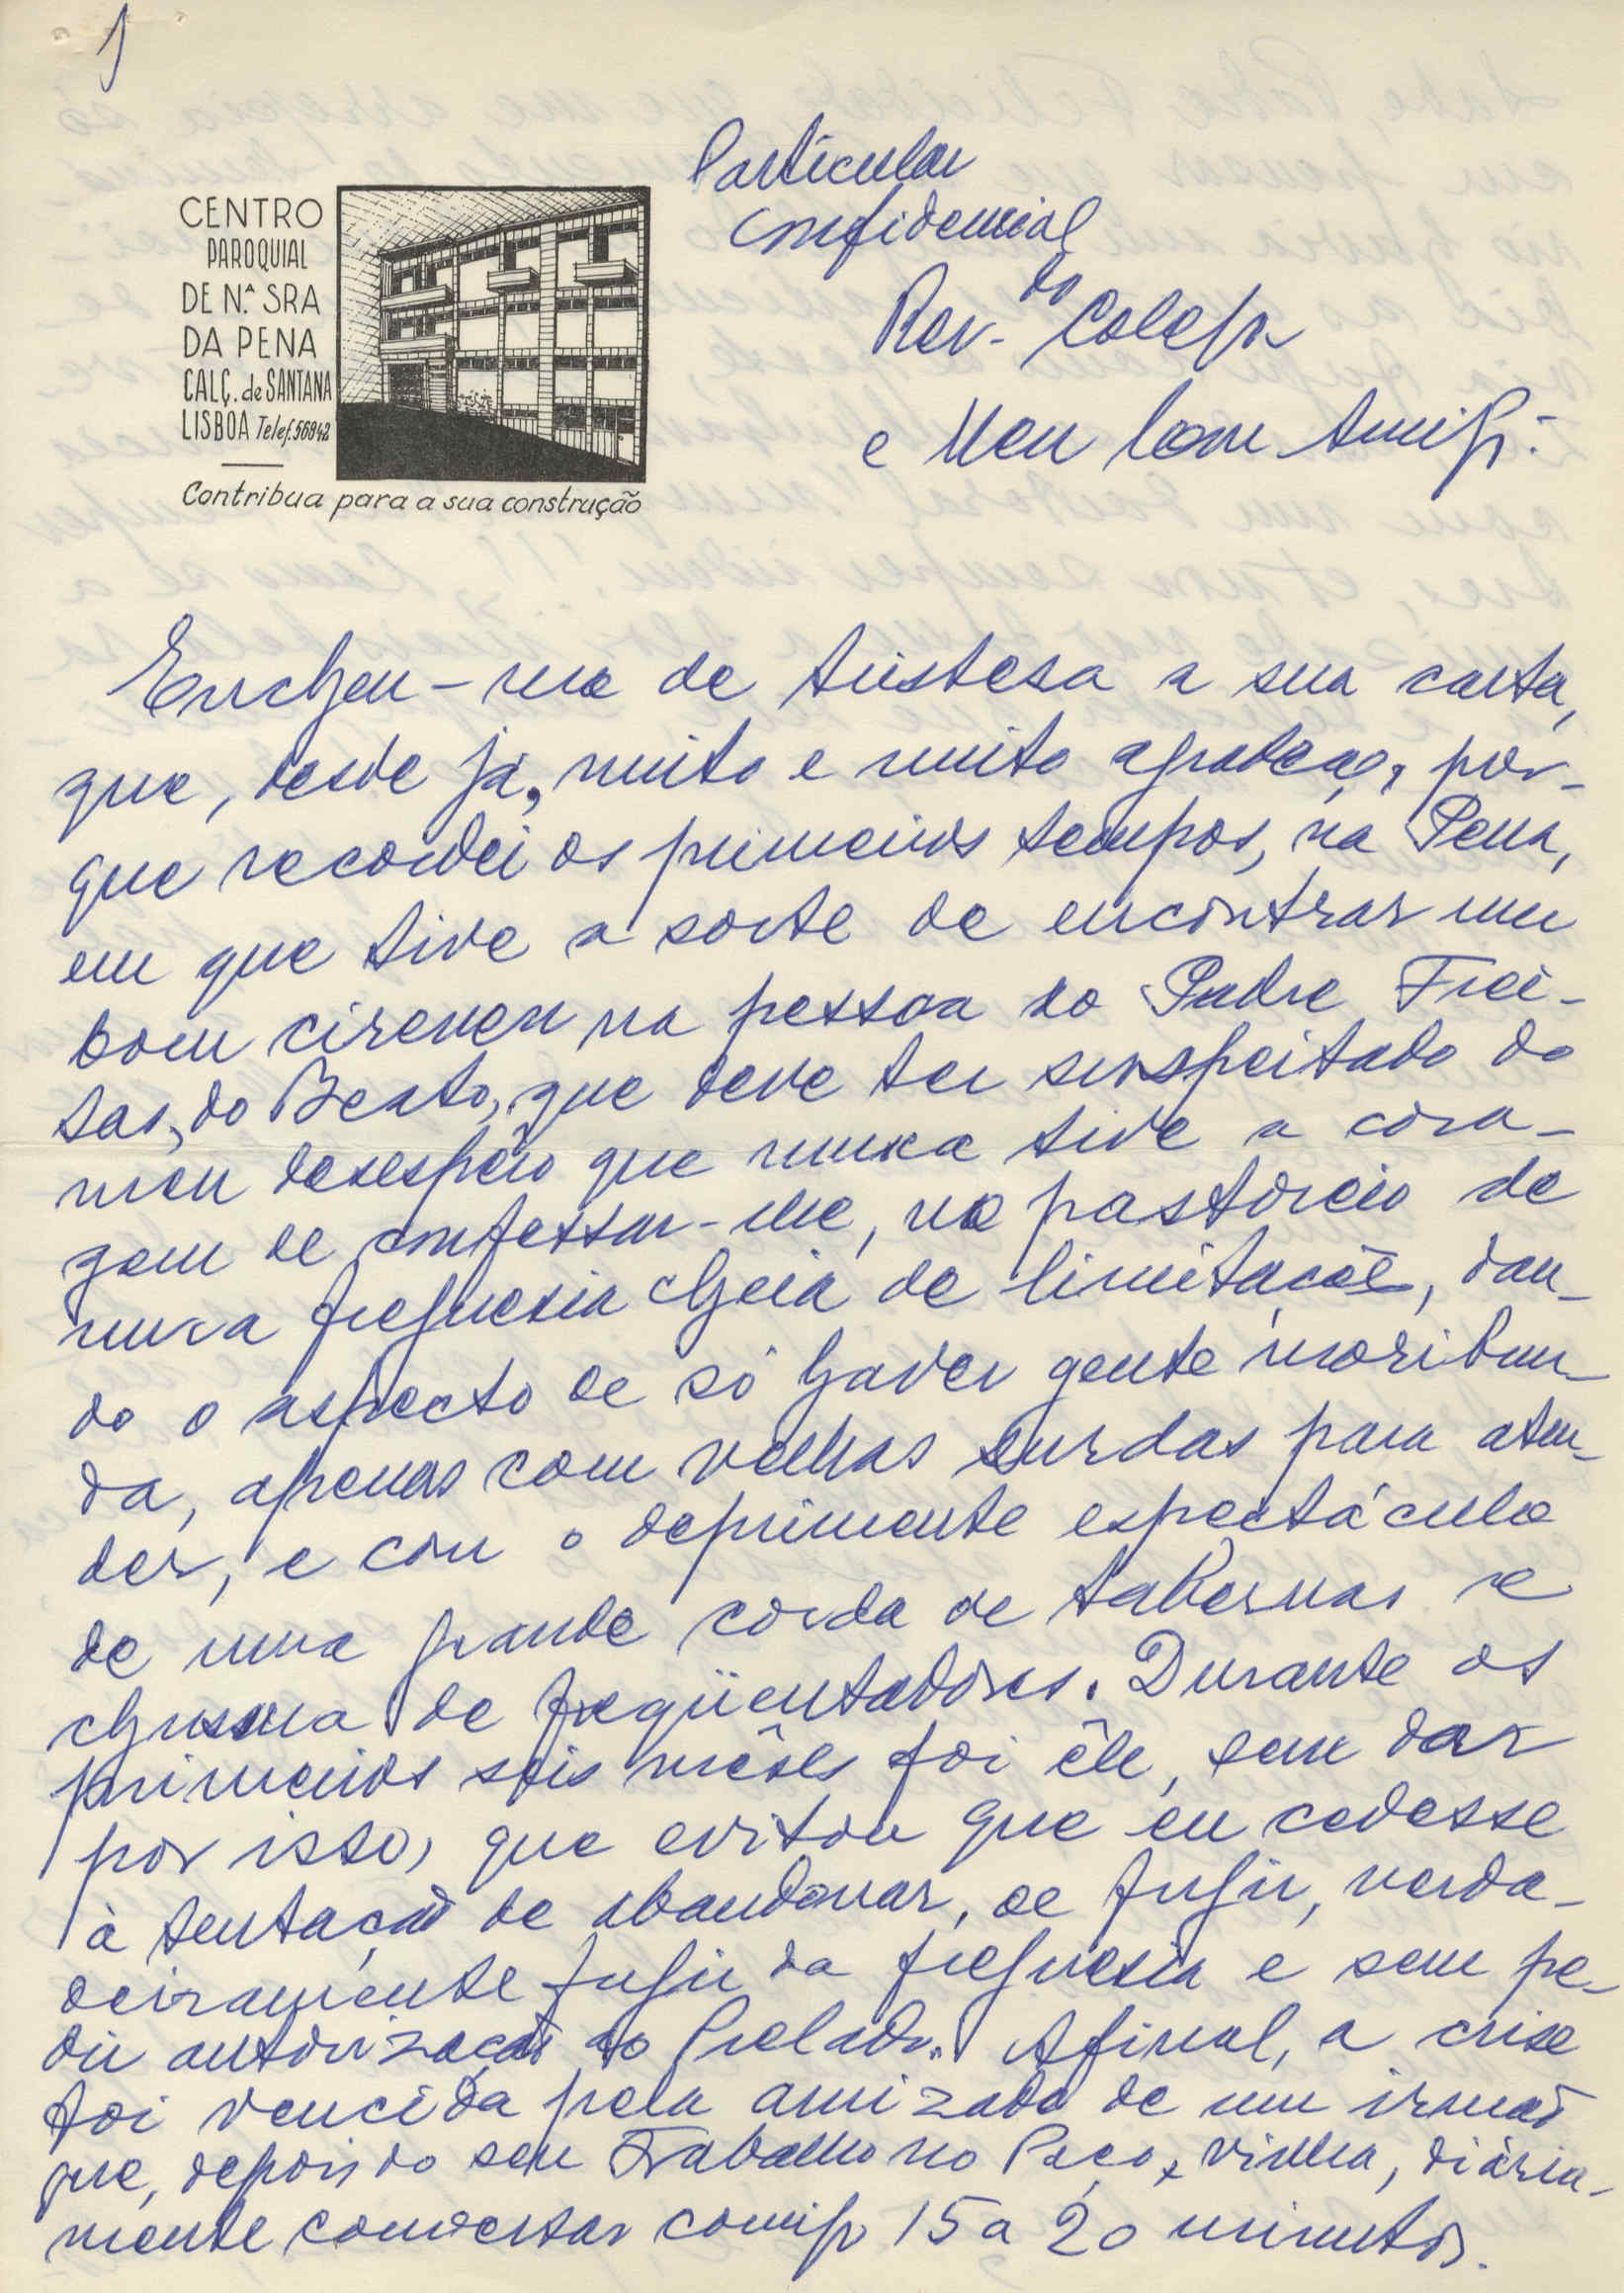 1
CENTRO
PAROQUIAL
DE N.ª SRA
DA PENA
CALÇ. de SANTANA
LISBOA Telef. 56842
Contribua para a sua construção
Particular
Confidencial
Rev.do Colega
e Meu bom Amigo:
Encheu-me de tristesa a sua carta,
que, desde já, muito e muito agradeço, por-
que recordei os primeiros tempos, na Pena,
em que tive a sorte de encontrar um
bom cireneu na pessoa do Padre Frei-
tas, do Beato, que deve ter suspeitado do
meu desespêro que nunca tive a cora-
gem de confessar-lhe, no pastoreio de
numa freguesia cheia de limitações, dan-
do o aspecto de só haver gente moribun-
da, apenas com velhas surdas para aten-
der, e com o deprimente espectáculo
de uma grande corda de tabernas e
chusma de freqüentadores. Durante os
primeiros seis mêses foi êle, sem dar
por isso, que evitou que eu cedesse
à tentação de abandonar, de fugir, verda-
deiramente fugir da freguesia e sem pe-
dir autorização ao Prelado. Afinal, a crise
foi vencida pela amizade de um irmão
que, depois do seu Trabalho no Paço, vinha, diária-
mente conversar comigo 15 a 20 minutos.